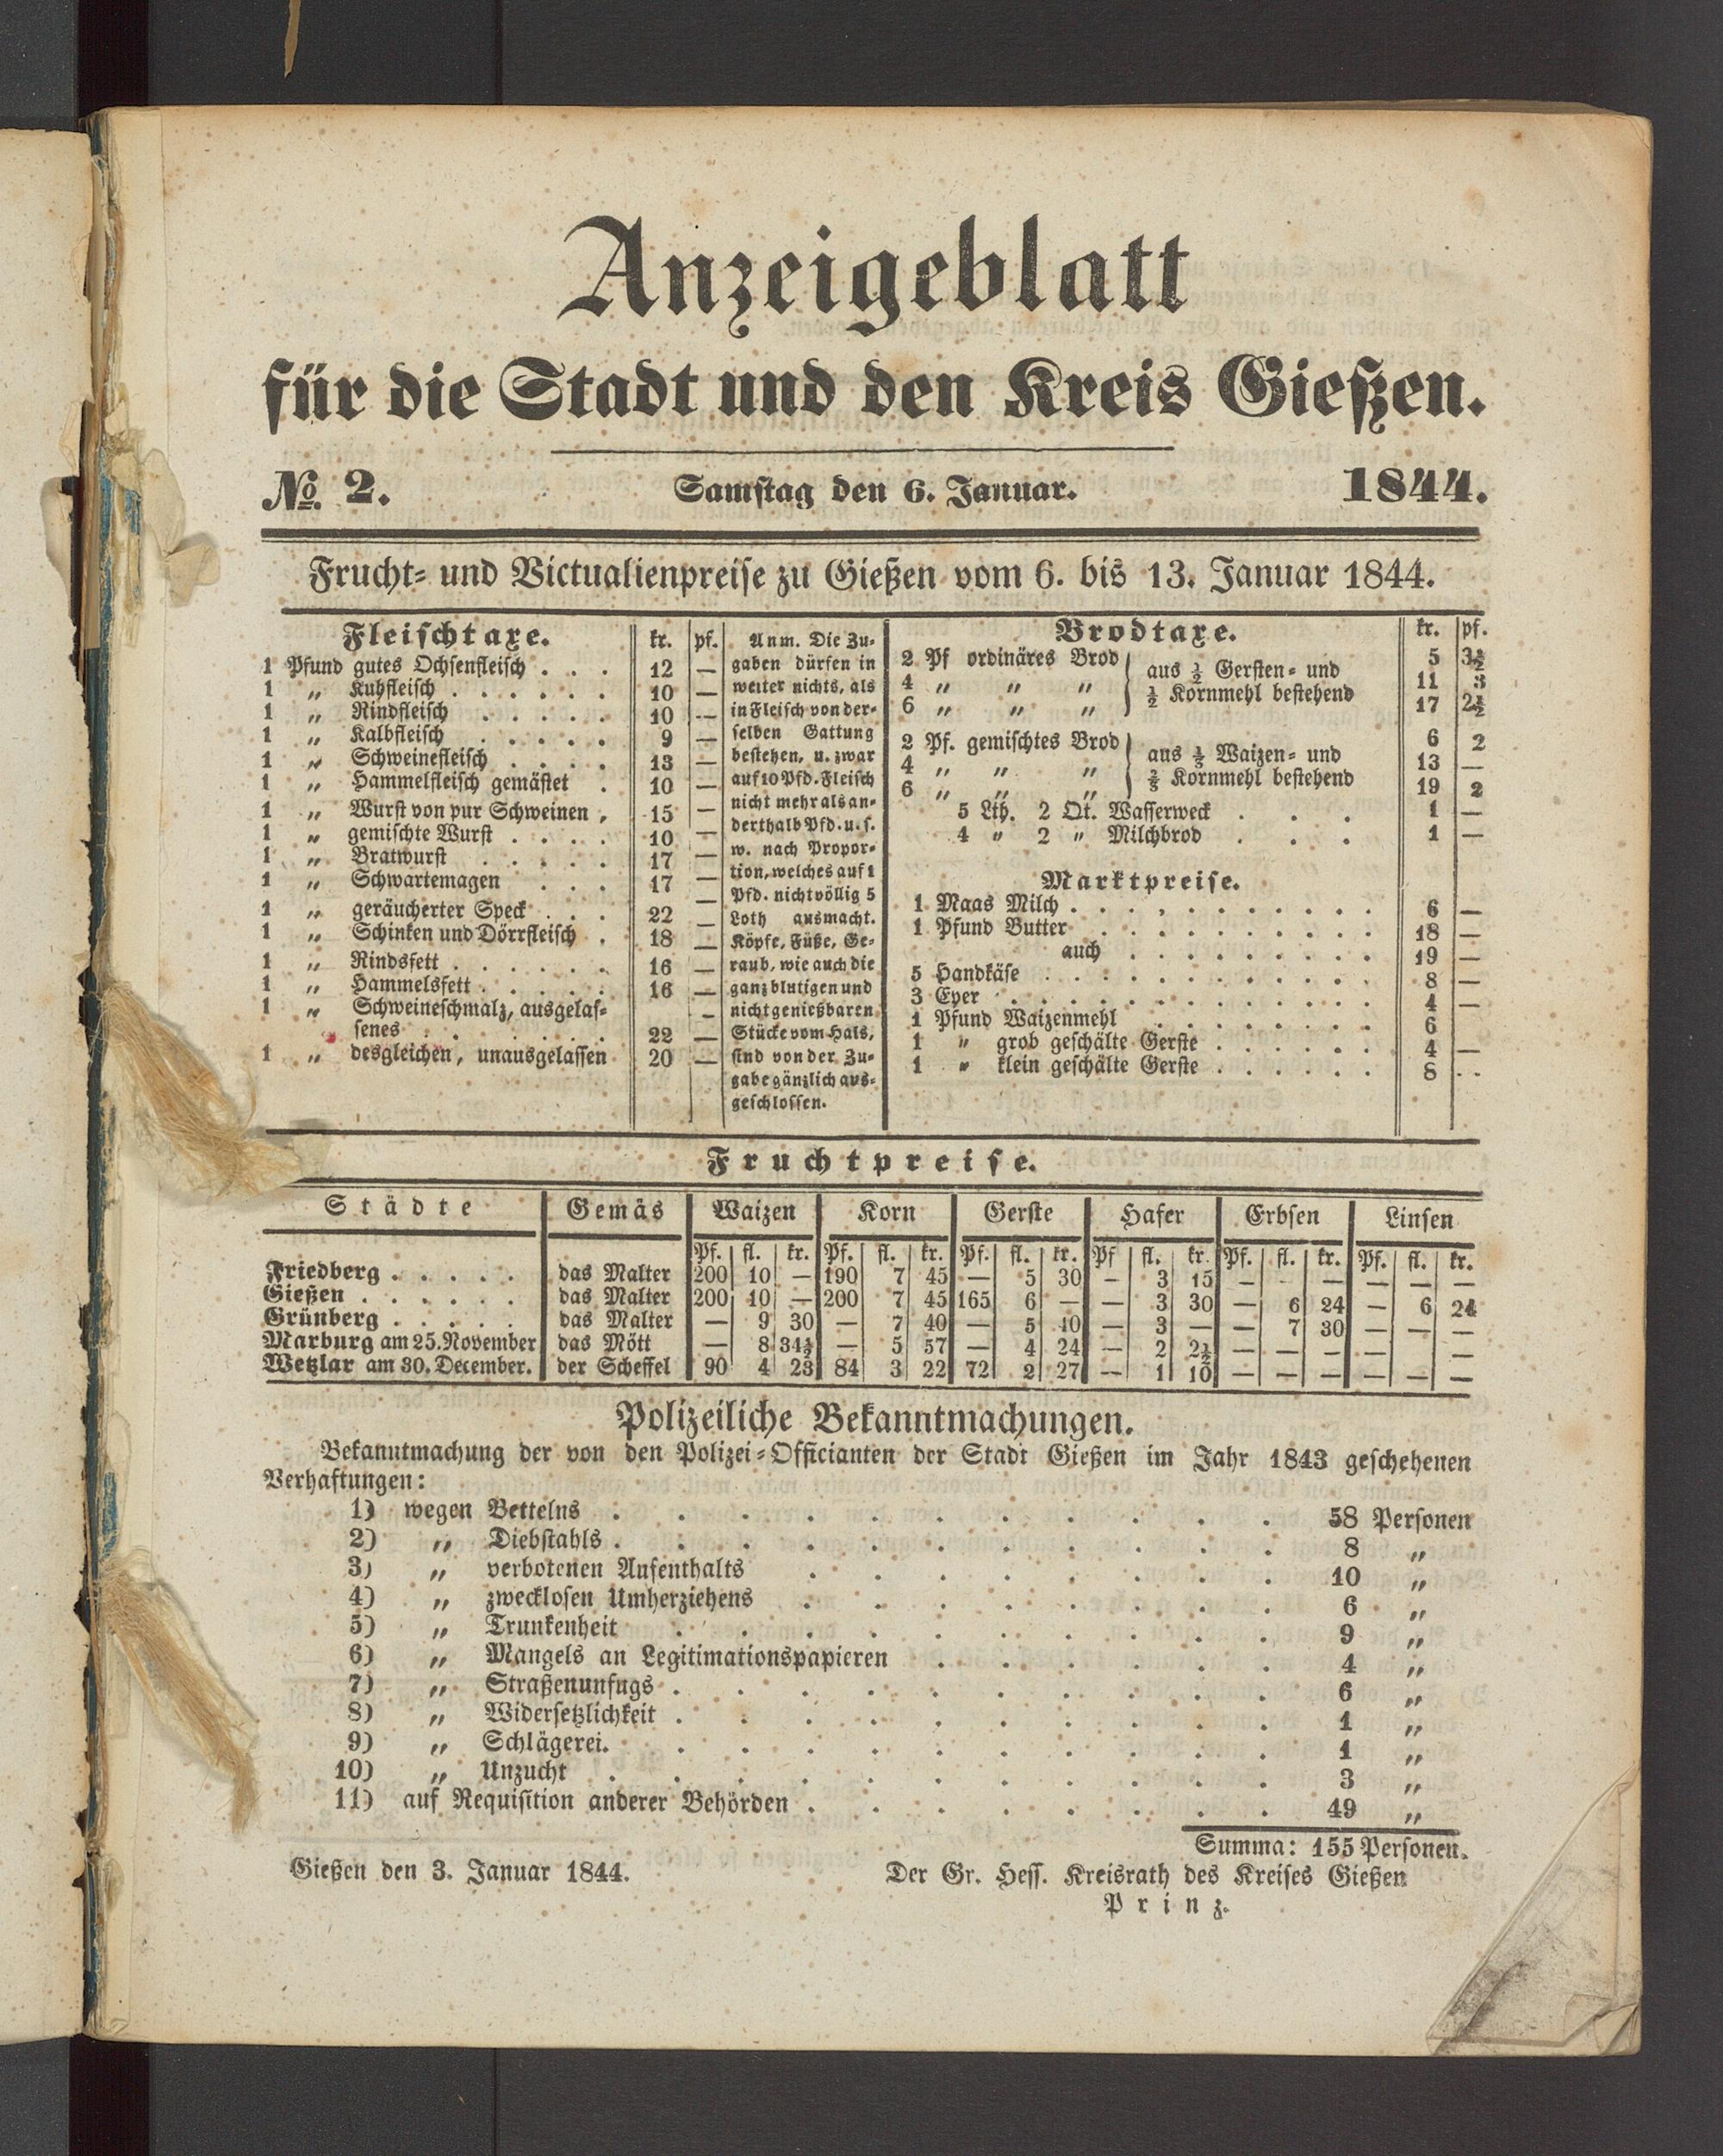 Anzeigeblatt
für die Stadt und den Kreis Gießen.
No. 2. Samstag den 6. Januar. 1844.
Frucht- und Victualienpreise zu Gießen vom 6. bis 13. Januar 1844.
Fleischtaxe. kr. pf.
1 Pfund gutes Ochsenfleisch . . . 12 —
1 „ Kuhfleisch . . . . . . 10 —
1 „ Rindfleisch . . . . . 10 —
1 „ Kalbfleisch . . . . . 9 —
1 „ Schweinefleisch . . . . 13 —
1 „ Hammelfleisch gemästet . 10 —
1 „ Wurst von pur Schweinen , 15 —
1 „ gemischte Wurst . . . . 10 —
1 „ Bratwurst . . . . . 17 —
1 „ Schwartemagen . . . 17 —
1 „ geräucherter Speck . . . 22 —
1 „ Schinken und Dörrfleisch . 18 —
1 „ Rindsfett . . . . . . 16 —
1 „ Hammelsfett . . . . . 16 —
1 „ Schweineschmalz, ausgelas- —
senes . . . . . . 22 —
1 „ desgleichen, unausgelassen 20 —
Anm. Die Zu-
gaben dürfen in
weiter nichts, als
in Fleisch von der-
selben Gattung
bestehen, u. zwar
auf 10 Pfd. Fleisch
nicht mehr als an-
derthalb Pfd. u. s.
w. nach Propor-
tion, welches auf 1
Pfd. nicht völlig 5
Loth ausmacht.
Köpfe, Füße, Ge-
raub, wie auch die
ganz blutigen und
nicht genießbaren
Stücke vom Hals,
sind von der Zu-
gabe gänzlich aus-
geschlossen.
Brodtaxe. kr. pf.
2 Pf ordinäres Brod 5 3½
aus ½ Gersten- und
4 „ „ „ 11 3
½ Kornmehl bestehend
6 „ „ „ 17 2½
2 Pf. gemischtes Brod 6 2
aus ⅓ Waizen- und
4 „ „ „ 13 —
⅔ Kornmehl bestehend
6 „ „ „ 19 2
5 Lth. 2 Qt. Wasserweck . . . 1 —
4 „ 2 „ Milchbrod . . . 1 —
Marktpreise.
1 Maas Milch . . . . . . . . . . . 6 —
1 Pfund Butter . . . . . . . . . . 18 —
auch . . . . . . . . . 19 —
5 Handkäse . . . . . . . . . . . 8 —
3 Eyer . . . . . . . . . . . . 4 —
1 Pfund Waizenmehl . . . . . . . . 6
1 „ grob geschälte Gerste . . . . . . 4 —
1 „ klein geschälte Gerste . . . . . . 8 - -
Fruchtpreise.
Städte Gemäs Waizen Korn Gerste Hafer Erbsen Linsen
Pf. fl. kr. Pf. fl. kr. Pf. fl. kr. Pf fl. kr. Pf. fl. kr. Pf. fl. kr.
Friedberg . . . . . das Malter 200 10 — 190 7 45 — 5 30 — 3 15 — - — — — —
Gießen . . . . . . das Malter 200 10 — 200 7 45 165 6 — — 3 30 — 6 24 — 6 24
Grünberg . . . . . das Malter — 9 30 — 7 40 — 5 10 — 3 — — 7 30 — — —
Marburg am 25. November das Mött — 8 34½ — 5 57 — 4 24 — 2 2½ — — — — —
Wetzlar am 30. December. der Scheffel 90 4 23 84 3 22 72 2 27 — 1 10 — — — — — —
Polizeiliche Bekanntmachungen.
Bekanntmachung der von den Polizei-Officianten der Stadt Gießen im Jahr 1843 geschehenen
Verhaftungen:
1) wegen Bettelns . . . . . . . . . . . 58 Personen
2) „ Diebstahls . . . . . . . . . . . 8 „
3) „ verbotenen Aufenthalts . . . . . . . . 10 „
4) „ zwecklosen Umherziehens . . . . . . . . 6 „
5) „ Trunkenheit . . . . . . . . . . 9 „
6) „ Mangels an Legitimationspapieren . . . . . . 4 „
7) „ Straßenunfugs . . . . . . . . . . 6 „
8) „ Widersetzlichkeit . . . . . . . . . . 1 „
9) „ Schlägerei. . . . . . . . . . . 1 „
10) „ Unzucht . . . . . . . . . . . 3 „
11) auf Requisition anderer Behörden . . . . . . . . 49 „
Summa: 155 Personen.
Gießen den 3. Januar 1844. Der Gr. Hess. Kreisrath des Kreises Gießen
Prinz.